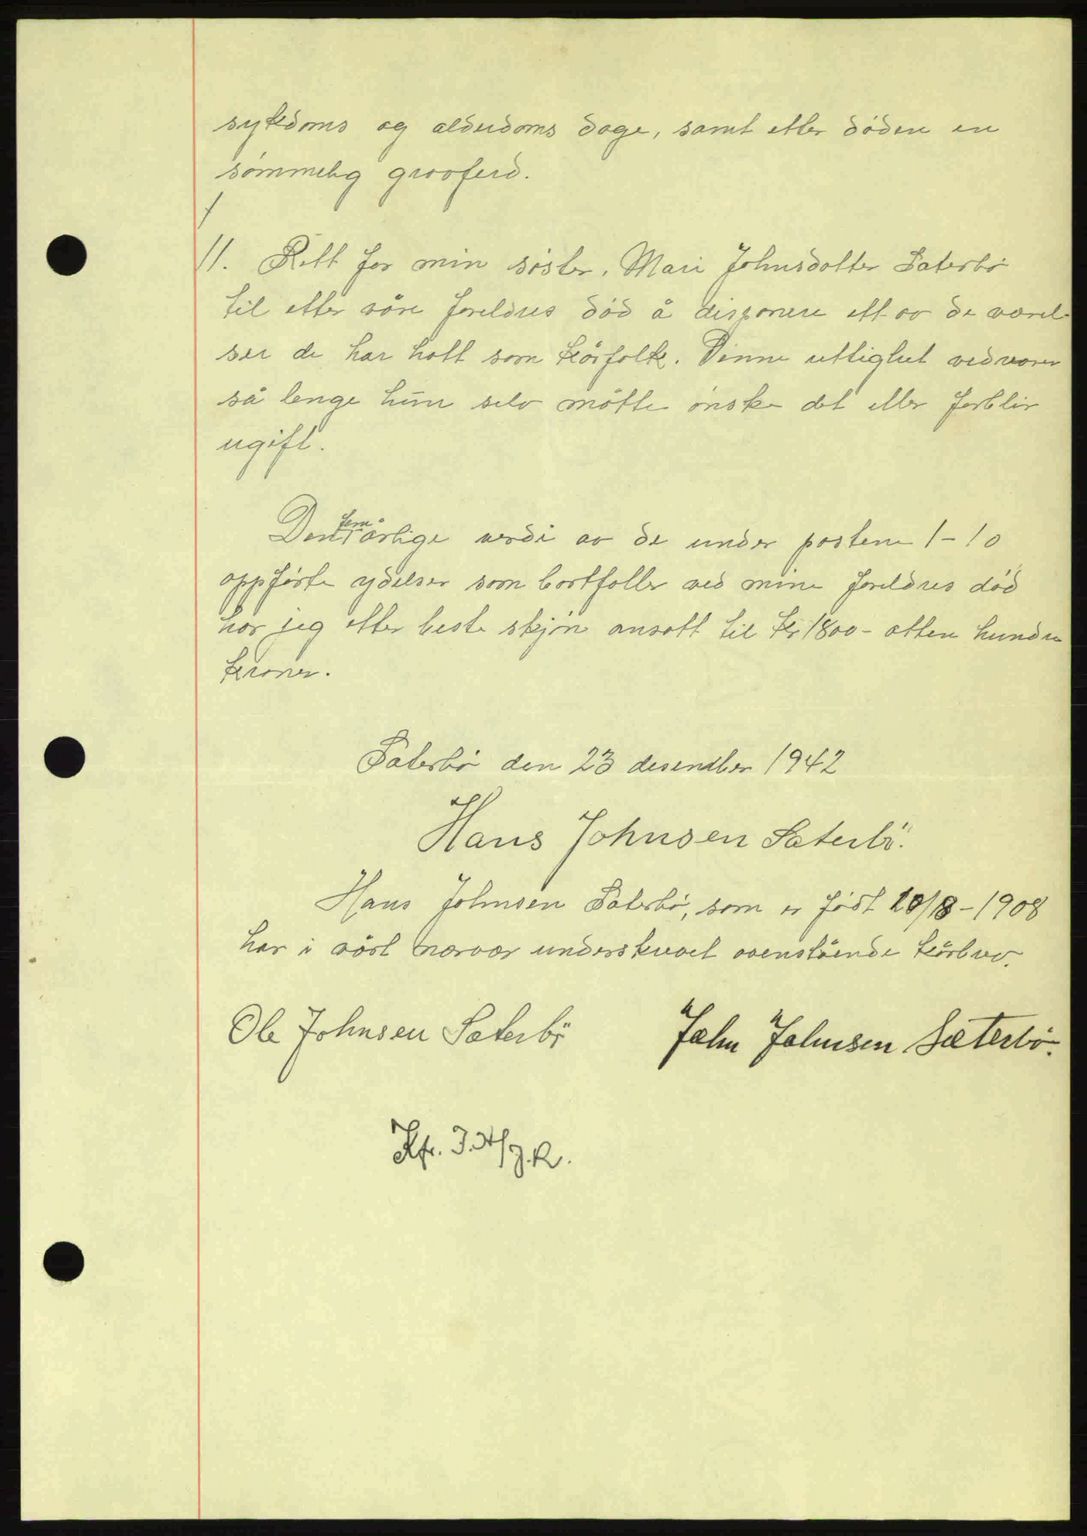 sykdoms og alderdoms dage, samt etter døden en
sømmelig gravferd.
11. Rett for min søster, Mari Johnsdotter Sæterbø
til etter våre foreldres død å disponere ett av de værel-
ser de har hatt som kårfolk. Denne rettighet vedvarer
så lenge hun selv måtte ønske det eller forblir
ugift.
Den fem årlige verdi av de under postene 1-10
oppførte ydelser som bortfaller ved mine foreldres død
har jeg etter beste skjøn ansatt til kr 1800- atten hundre
kroner.
Sæterbø den 23 desember 1942
Hans Johnsen Sæterbø.
Hans Johnsen Sæterbø, som er født 10/8-1908
har i vårt nærvær underskrevet ovenstående kårbrev.
Ole Johnsen Sæterbø John Johnsen Sæterbø.
Kfr. J.H/J.R.